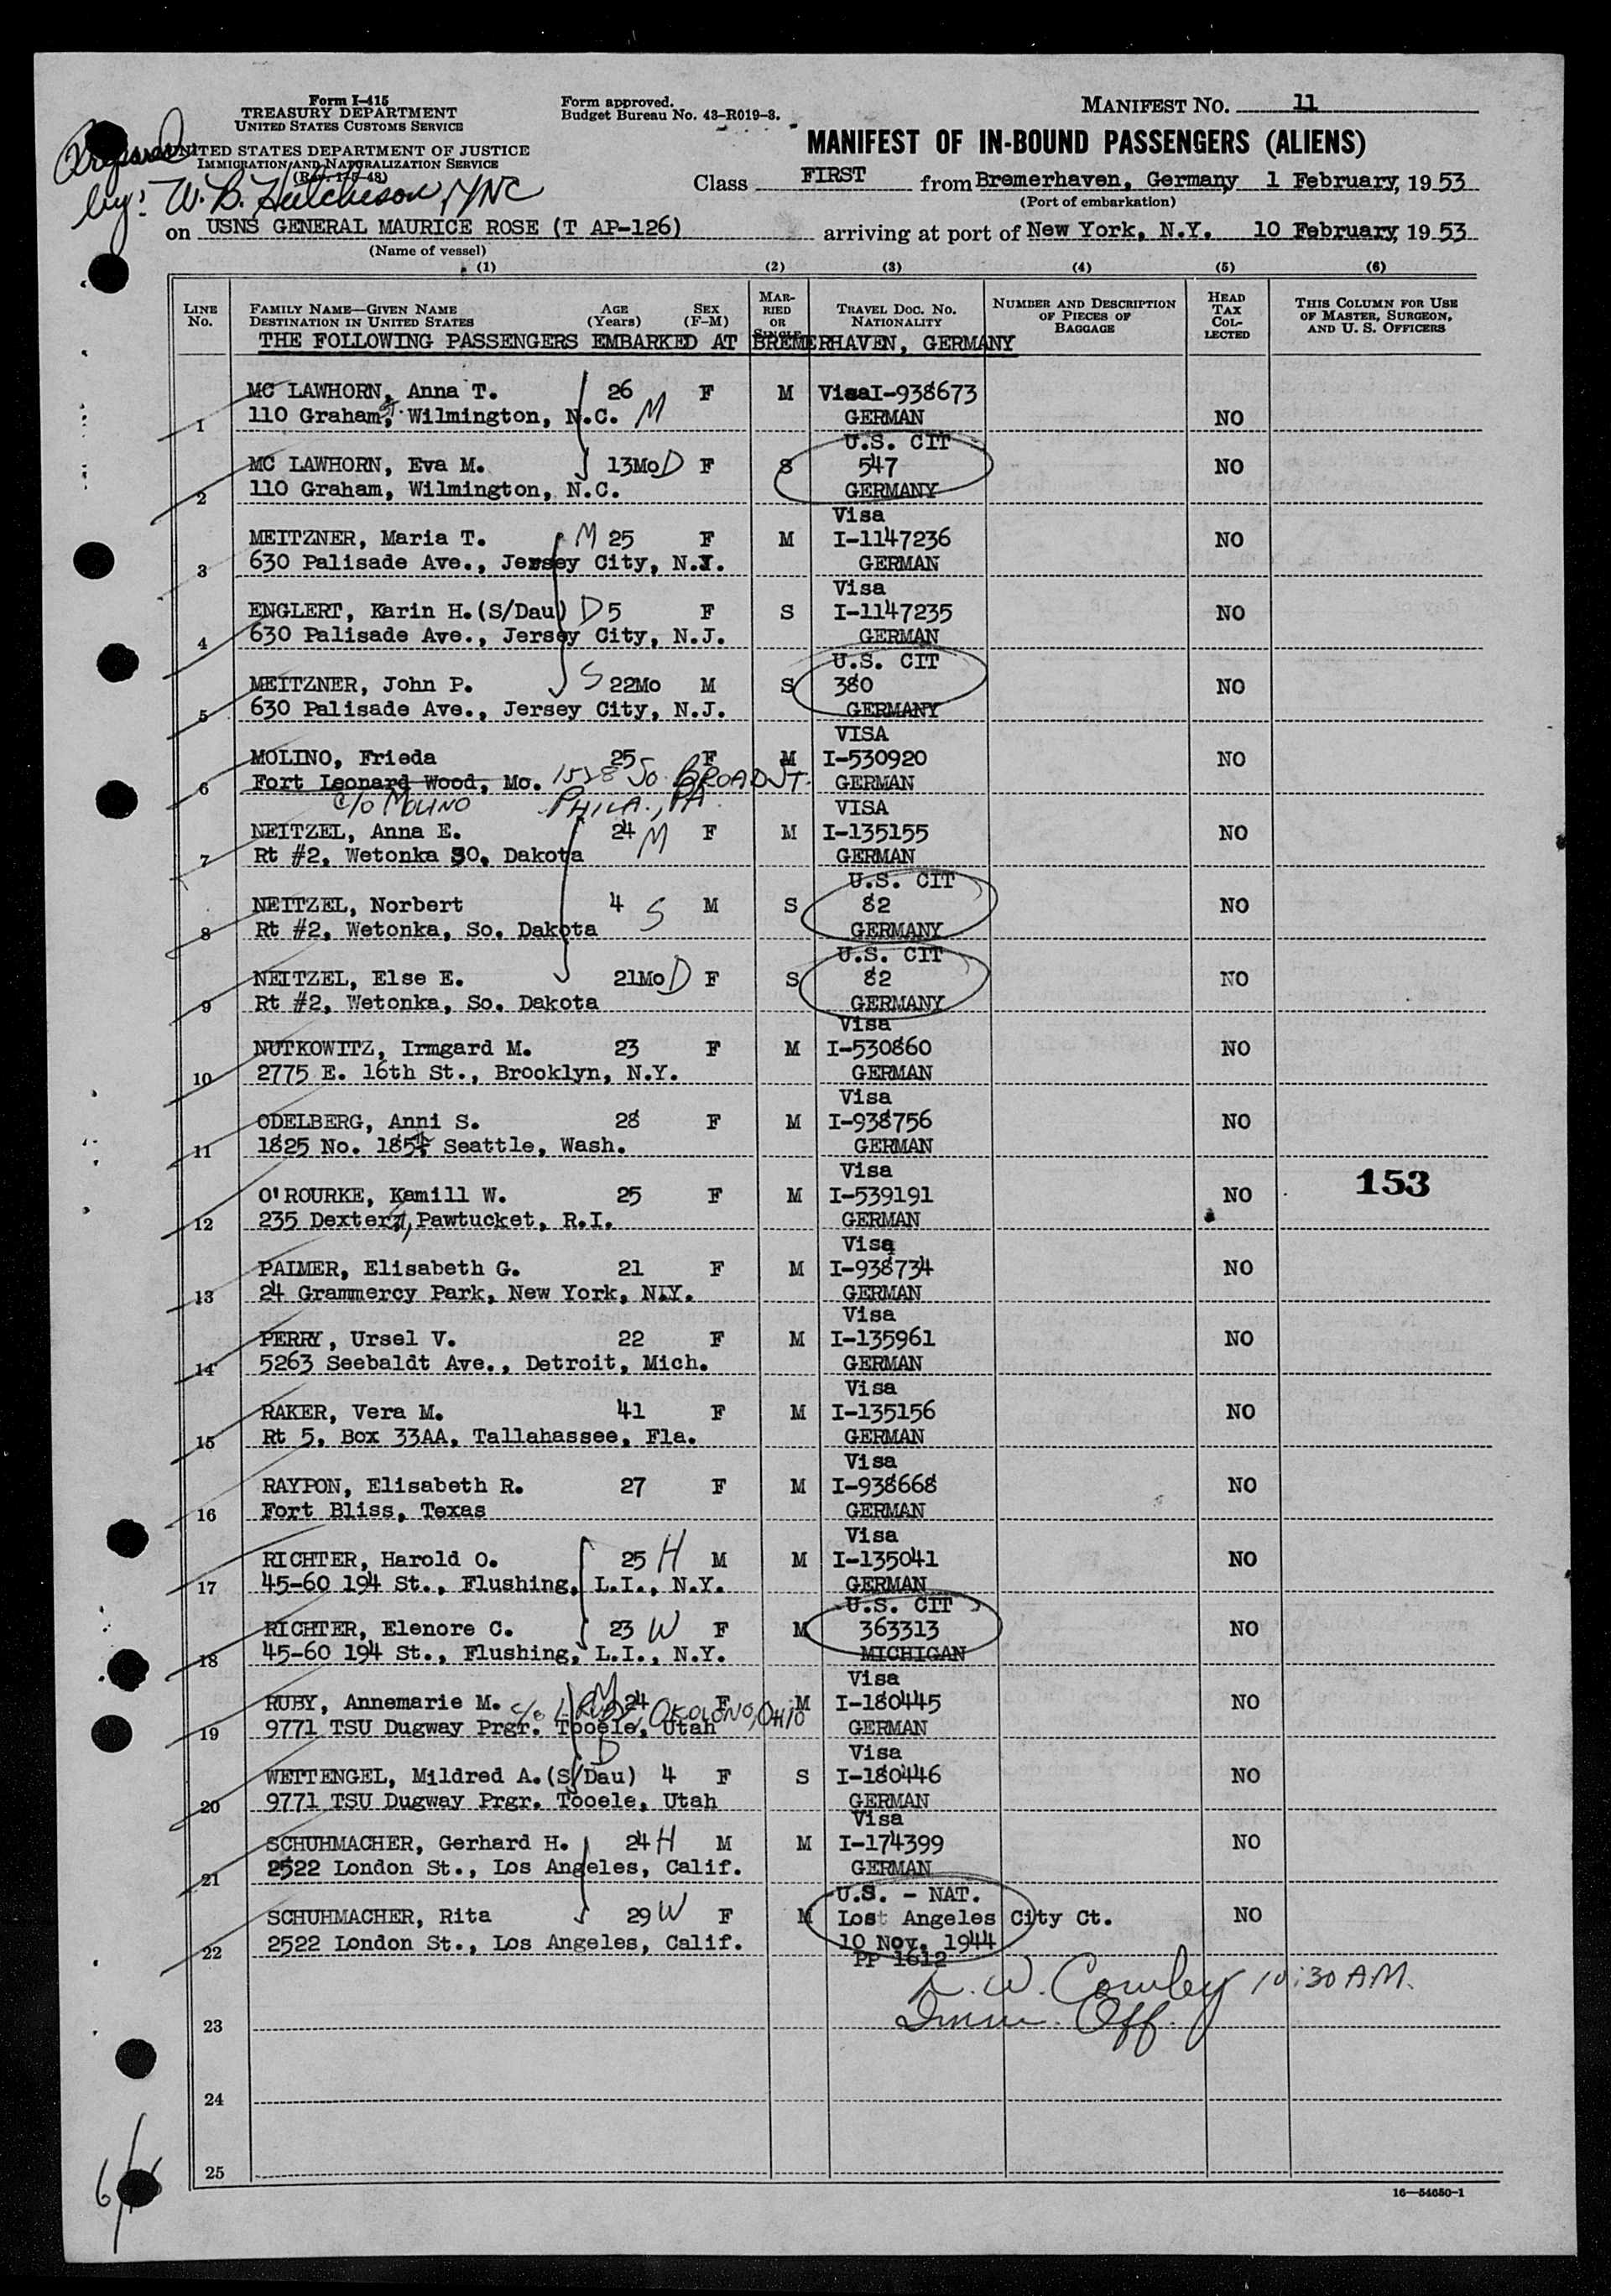 Form I-415
TREASURY DEPARTMENT
UNITED STATES CUSTOMS SERVICE
UNITED STATES DEPARTMENT OF JUSTICE
IMMIGRATION AND NATURALIZATION SERVICE
(Rev. 1-5-48)
Form approved.
Budget Bureau No. 43-R019-3.
MANIFEST NO. 11
MANIFEST OF IN-BOUND PASSENGERS (ALIENS)
Prepared
by: W. B. Hutcheson, YNC
Class FIRST from Bremerhaven, Germany 1 February, 1953
(Port of embarkation)
on USNS GENERAL MAURICE ROSE (T AP-126) arriving at port of New York, N.Y. 10 February, 1953
(Name of vessel)
(1) (2) (3) (4) (5) (6)
LINE No. FAMILY NAME—GIVEN NAME DESTINATION IN UNITED STATES AGE (Years) SEX (F-M) MARRIED OR SINGLE TRAVEL DOC. NO. NATIONALITY NUMBER AND DESCRIPTION OF PIECES OF BAGGAGE HEAD TAX COLLECTED THIS COLUMN FOR USE OF MASTER, SURGEON, AND U. S. OFFICERS
THE FOLLOWING PASSENGERS EMBARKED AT BREMERHAVEN, GERMANY
MC LAWHORN, Anna T. 26 F M VisaI-938673
1 110 Graham, St. Wilmington, N.C. M GERMAN NO
U.S. CIT
MC LAWHORN, Eva M. 13Mo D F S 547 NO
2 110 Graham, Wilmington, N.C. GERMANY
Visa
MEITZNER, Maria T. M 25 F M I-1147236 NO
3 630 Palisade Ave., Jersey City, N.J. GERMAN
Visa
ENGLERT, Karin H.(S/Dau) D 5 F S I-1147235 NO
4 630 Palisade Ave., Jersey City, N.J. GERMAN
U.S. CIT
MEITZNER, John P. S 22Mo M S 380 NO
5 630 Palisade Ave., Jersey City, N.J. GERMANY
VISA
MOLINO, Frieda 25 F M I-530920 NO
6 Fort Leonard Wood, Mo. 1528 So. BROAD ST. GERMAN
c/o MOLINO PHILA., PA. VISA
NEITZEL, Anna E. 24 M F M I-135155 NO
7 Rt #2, Wetonka SO. Dakota GERMAN
U.S. CIT
NEITZEL, Norbert 4 S M S 82 NO
8 Rt #2, Wetonka, So. Dakota GERMANY
U.S. CIT
NEITZEL, Else E. 21Mo D F S 82 NO
9 Rt #2, Wetonka, So. Dakota GERMANY
Visa
NUTKOWITZ, Irmgard M. 23 F M I-530860 NO
10 2775 E. 16th St., Brooklyn, N.Y. GERMAN
Visa
ODELBERG, Anni S. 28 F M I-938756 NO
11 1825 No. 185th Seattle, Wash. GERMAN
Visa
O'ROURKE, Kamill W. 25 F M I-539191 NO 153
12 235 Dexter St, Pawtucket, R.I. GERMAN
Visa
PALMER, Elisabeth G. 21 F M I-938734 NO
13 24 Grammercy Park, New York, N.Y. GERMAN
Visa
PERRY, Ursel V. 22 F M I-135961 NO
14 5263 Seebaldt Ave., Detroit, Mich. GERMAN
Visa
RAKER, Vera M. 41 F M I-135156 NO
15 Rt 5, Box 33AA, Tallahassee, Fla. GERMAN
Visa
RAYPON, Elisabeth R. 27 F M I-938668 NO
16 Fort Bliss, Texas GERMAN
Visa
RICHTER, Harold O. 25 H M M I-135041 NO
17 45-60 194 St., Flushing, L.I., N.Y. GERMAN
U.S. CIT
RICHTER, Elenore C. 23 W F M 363313 NO
18 45-60 194 St., Flushing, L.I., N.Y. MICHIGAN
Visa
RUBY, Annemarie M. M 24 F M I-180445 NO
c/o L. RUBY, OKOLONO, OHIO
19 9771 TSU Dugway Prgr. Tooele, Utah GERMAN
D Visa
WETTENGEL, Mildred A.(S/Dau) 4 F S I-180446 NO
20 9771 TSU Dugway Prgr. Tooele, Utah GERMAN
Visa
SCHUHMACHER, Gerhard H. 24 H M M I-174399 NO
21 2522 London St., Los Angeles, Calif. GERMAN
U.S. - NAT.
SCHUHMACHER, Rita 29 W F M Lost Angeles City Ct. NO
22 2522 London St., Los Angeles, Calif. 10 Nov. 1944
PP 1612
W. Cowley 10:30 AM.
23 Imm. Off.
24
25
16—54650-1